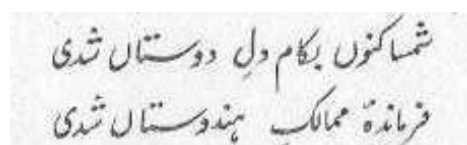 شمسا کنوں بکام دلِ دوستاں شدی
فرماندۂ ممالکِ ہندوستاں شدی